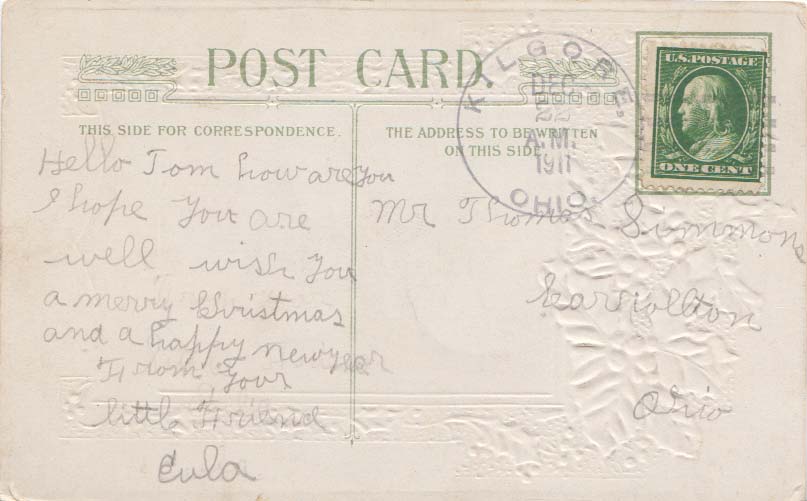 POST CARD.
THIS SIDE FOR CORRESPONDENCE.
THE ADDRESS TO BE WRITTEN
ON THIS SIDE
KILGORE,
DEC
22
A.M.
1911
OHIO.
U.S. POSTAGE
ONE CENT
Hello Tom how are you
I hope you are
well wish you
a merry Christmas
and a happy newyear
From your
little Friend
Eula
Mr Thomas Simmons
Carrollton
Ohio